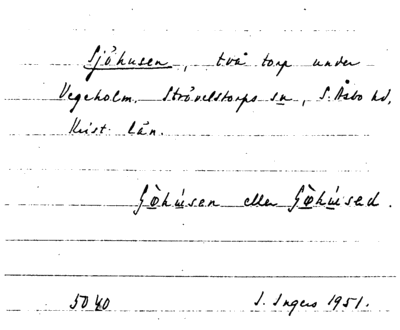 Sjöhusen, två torp under
Vegeholm. Strövelstorps sn, S. Åsbo hd,
Krist. län.
eller
5040 I. Ingers 1951.